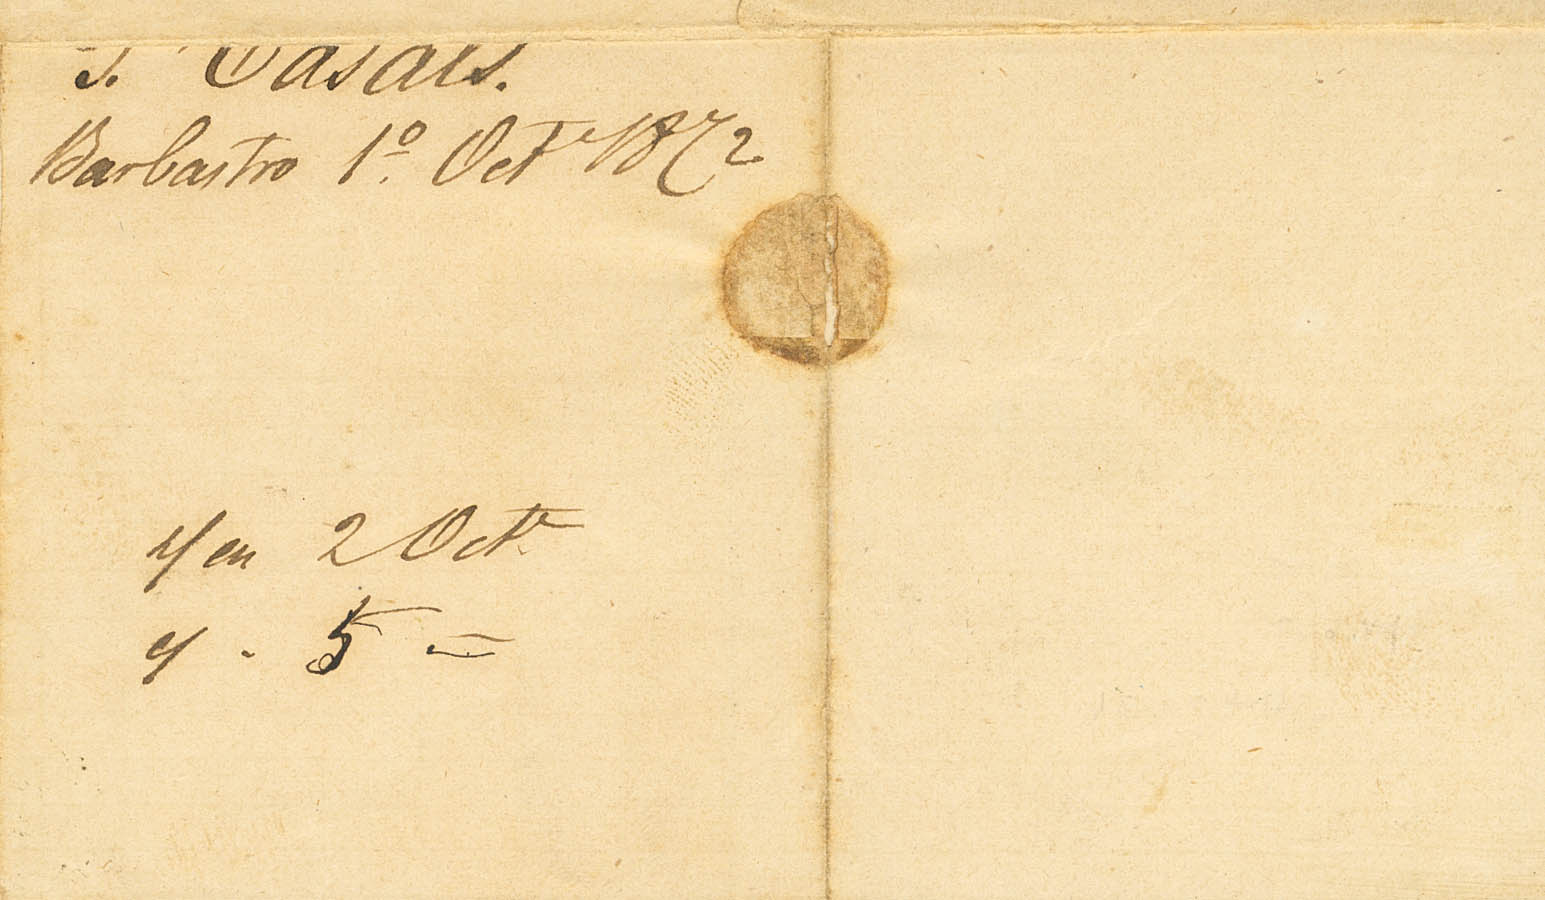 Casals.
Barbastro 1º. Octe 1872
y en 2 Octe
y - 5 =